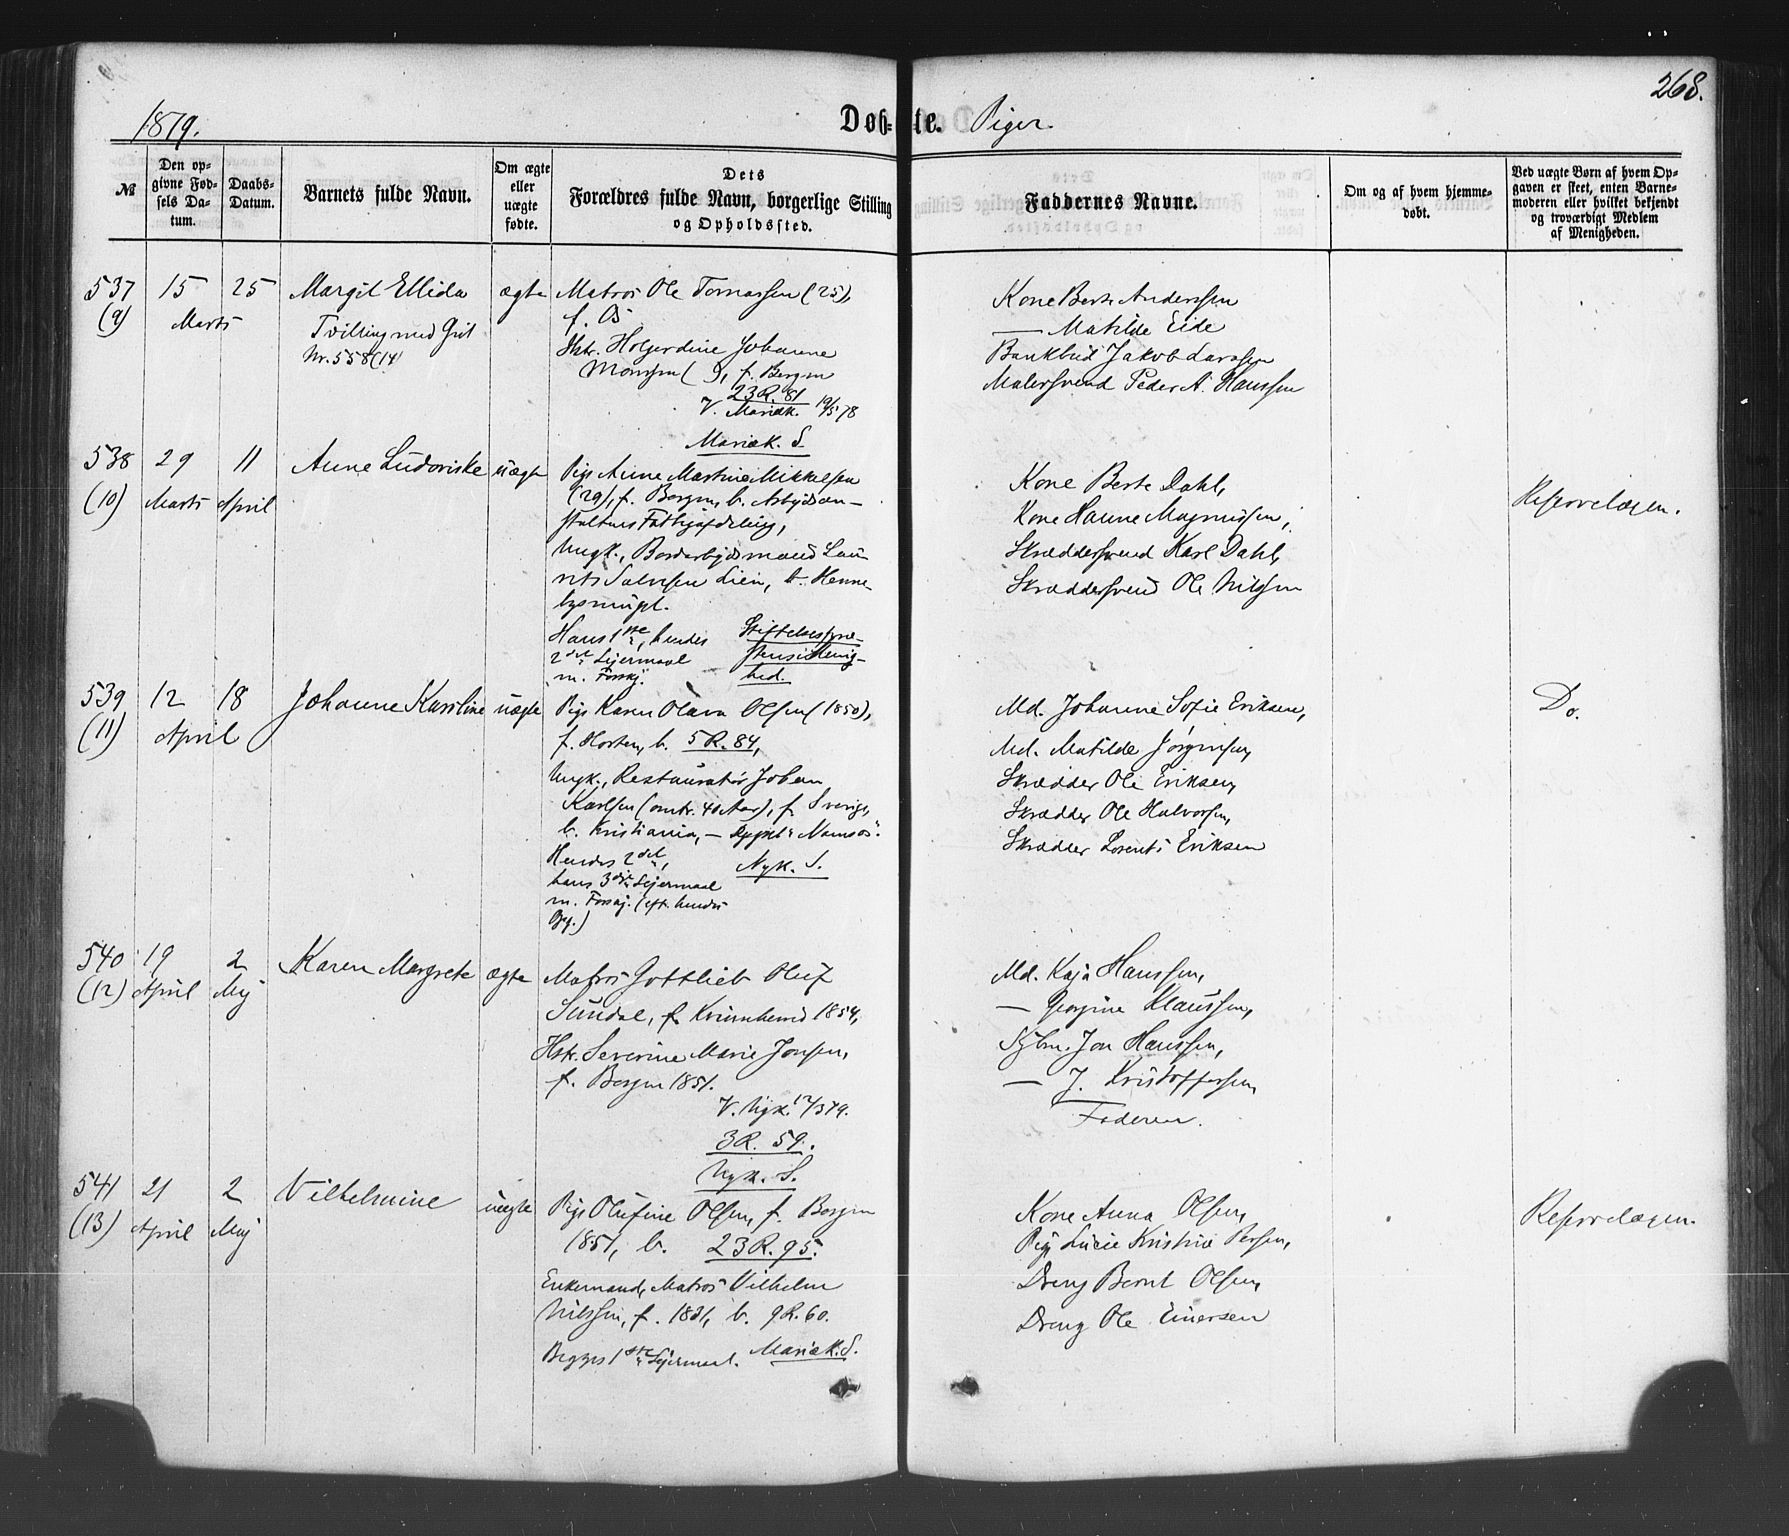 268.
1879.
Døb-te. Piger
№
Den op-
givne Fød-
sels Da-
tum.
Daabs-
Datum.
Barnets fulde Navn.
Om ægte
eller
uægte
fødte.
Dets
Forældres fulde Navn, borgerlige Stilling
og Opholdssted.
Faddernes Navne.
Om og af hvem hjemme-
døbt.
Ved uægte Børn af hvem Op-
gaven er skeet, enten Barne-
moderen eller hvilket bekjendt
og troværdigt Medlem
af Menigheden.
537 15 25 Margit Ellida ægte Matros Ole Tomassen (25),
(9) Marts
f. Os
Tvilling med Gut
Nr. 558 (14)
Hstr. Holgerdine Johanne
Monssen ( ), f. Bergen
23 R. 81
V. Mariæk. 19/5 78
Mariæk. S.
Kone Berte Anderssen
— Matilde Eide
Bankbud Jakob Larssen
Malersvend Peder A. Hanssen
538 29 11 Anne Ludoviske uægte Pige Anne Martine Mikkelsen
(10) Marts April
(29), f. Bergen, b. Arbejdsan-
staltens Fattigafdeling,
Ungk., Bordarbejdsmand Lau-
rits Salvesen Lien, b. Henne-
bysmuget.
Hans 1ste, hendes
2det Lejermaal
m. Forskj.
Stiftelsesfore-
stersidenig-
hed.
Kone Berte Dahl,
Kone Hanne Magnussen,
Skræddersvend Karl Dahl,
Skræddersvend Ole Nilsen
Reservelægen.
539 12 18 Johanne Karoline uægte Pige Karen Olava Olsen (1850),
(11) April
f. Horten, b. 5 R. 84,
Ungk., Restauratør Johan
Karlsen (omtr. 40 Aar), f. Sverige,
b. Kristiania, — Dypsk. "Namsos".
Hendes 2det,
hans 3die Lejermaal
m. Forskj. (eft. hendes
Opg.)
Nyk. S.
Md. Johanne Sofie Eriksen,
Md. Matilde Jørgensen,
Skrædder Ole Eriksen,
Skrædder Ole Halvorsen,
Skrædder Lorents Eriksen
Do.
540 19 2 Karen Margrete ægte Matros Gottlieb Oluf
(12) April Mej
Sundal, f. Kvinnherred 1854,
Hstr. Severine Marie Jonsen,
f. Bergen 1851.
V. Nyk. 12/3 79.
3 R. 59.
Nyk. S.
Md. Kaja Hanssen,
— Georgine Klaussen,
Sjbm. Jon Hanssen,
— J. Kristoffersen,
Faderen.
541 21 2 Vilhelmine uægte Pige Olufine Olsen, f. Bergen
(13) April Mej
1851, b. 23 R. 95.
Enkemand, Matros Vilhelm
Nilssen, f. 1831, b. 9 R. 60.
Begges 1ste Lejermaal. Mariæk. S.
Kone Anna Olsen,
Pige Lucie Kristine Persen,
Dreng Bernt Olsen,
Dreng Ole Einersen
Reservelægen.